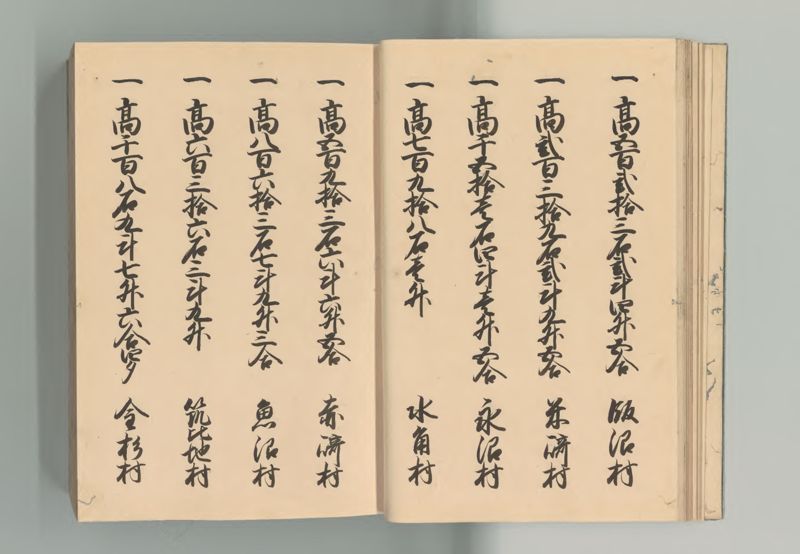 一 髙五百弐拾三石弐斗四升五合 飯沼村
一 髙弐百三拾九石弐斗九升五合 米崎村
一 髙千五拾壱石四斗壱升五合 永沼村
一 髙七百九拾八石壱升 水角村
一 髙五百九拾三石六斗六升五合 赤崎村
一 髙八百六拾三石七斗九升三合 魚沼村
一 髙六百三拾六石二斗九升 筑比地村
一 髙千百八石九斗七升六合四夕 金杉村